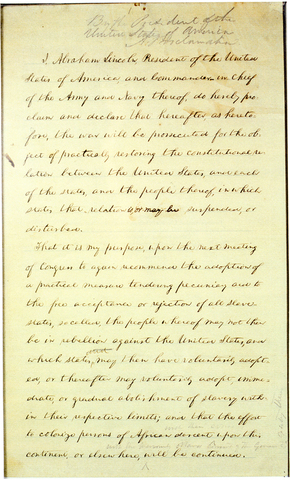 By the President of the
United States of America
A Proclamation
I, Abraham Lincoln, President of the United
States of America, and Commander in Chief
of the Army and Navy thereof, do hereby pro
claim and declare that hereafter, as hereto
fore, the war will be prosecuted for the ob
ject of practically restoring the constitutional re
lation between the United States, and each
of the states, and the people thereof, in which
states that relation is, or may be suspended, or
disturbed.
That it is my purpose, upon the next meeting
of Congress to again recommend the adoption of
a practical measure tendering pecuniary aid to
the free acceptance or rejection of all slave-
states, so called, the people whereof may not then
be in rebellion against the United States, and
which states, may then have voluntarily adopt
ed, or thereafter may voluntarily adopt, imme
diate, or gradual abolishment of slavery with
in their respective limits; and that the effort
to colonize persons of African descent upon the
continent, or elsewhere, will be continued.